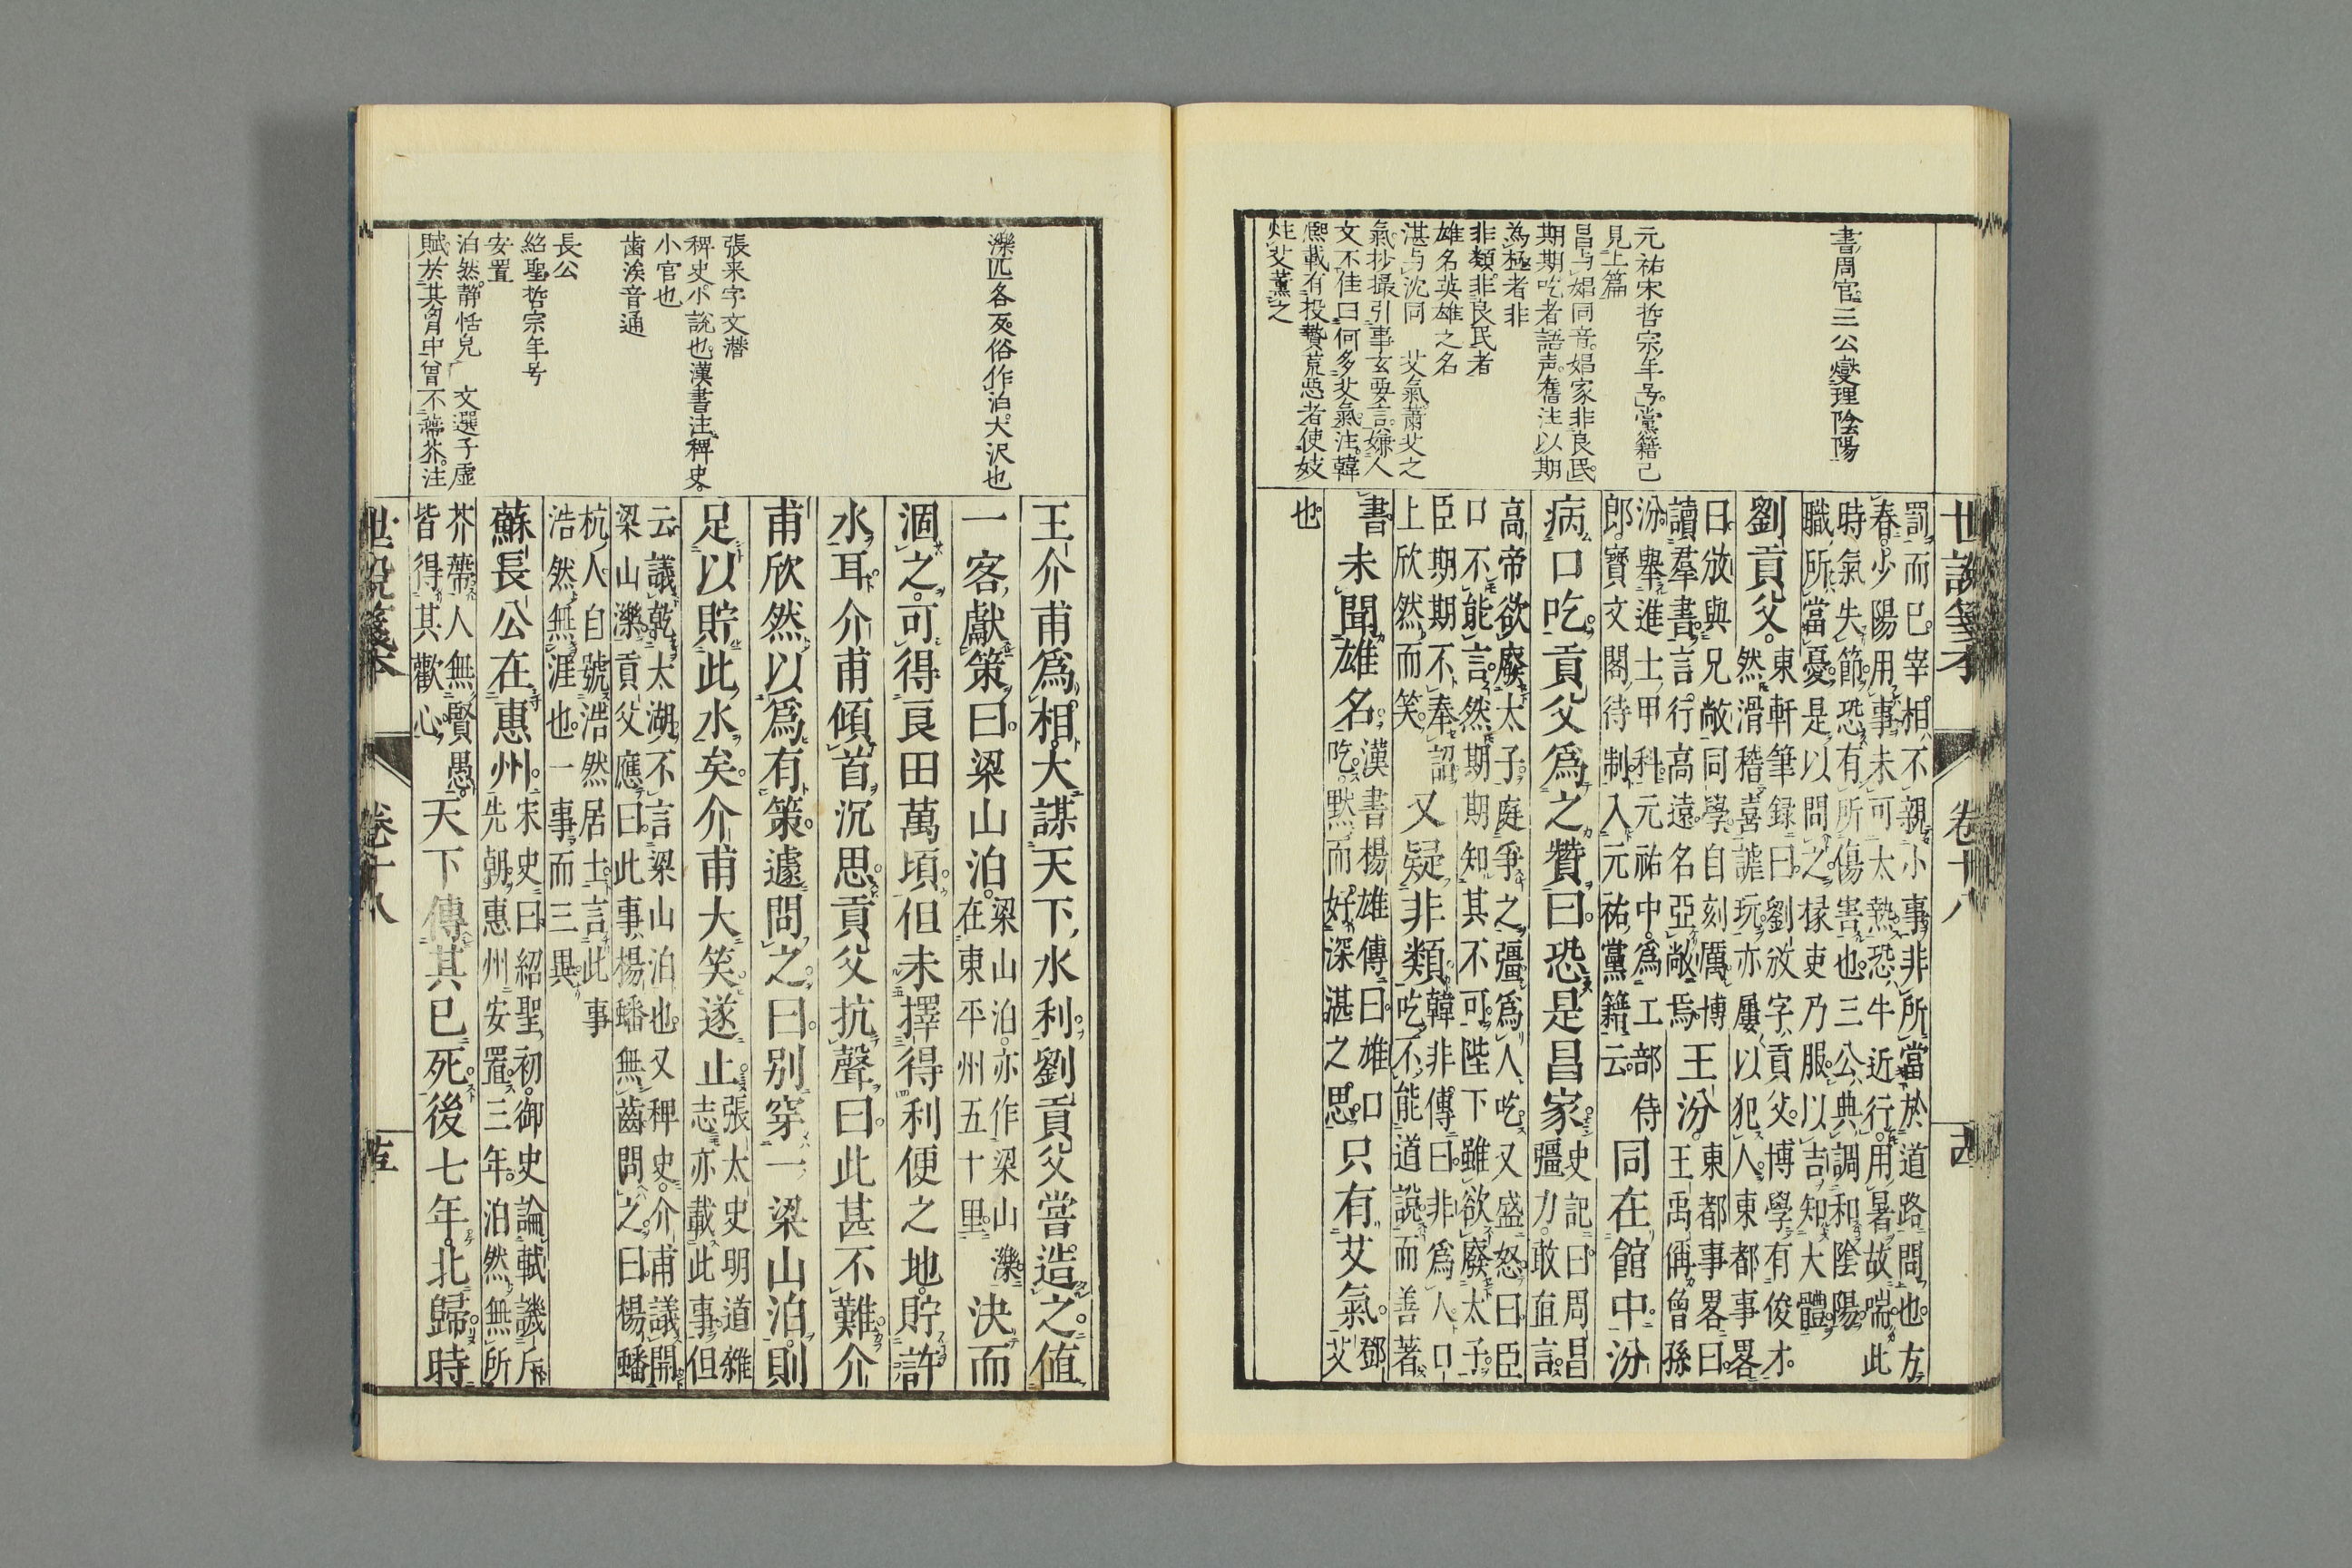 世說箋本
卷十八
書周官三公燮理陰陽
元祐宋哲宗年号黨籍已
見上篇
昌与娼同音娼家非良民
期期吃者語声舊注以期
為極者非
非類非良民者
雄名英雄之名
湛与沈同 艾氣蕭艾之
氣抄撮引事玄要言嫌人
文不佳曰何多艾氣注韓
熙載有投贄荒惡者使妓
炷艾薰之
罰而已宰相不親小事非所當於道路問也方
春少陽用事未可太熱恐牛近行用暑故喘此
時氣失節恐有所傷害也三公典調和陰陽
職所當憂是以問之椽吏乃服以吉知大體
劉貢父東軒筆録曰劉攽字貢父博學有俊才
然滑稽喜謔玩亦屢以犯人東都事畧
曰攽與兄敞同學自刻厲博
讀羣書言行高遠名亞敞焉
王汾東都事畧曰
王禹偁曾孫
汾舉進士甲科元祐中爲工部侍
郎寶文閣待制入元祐黨籍云
同在館中汾
病口吃貢父爲之贊曰恐是昌家史記曰周昌
彊力敢直言
高帝欲廢太子庭爭之彊爲人吃又盛怒曰臣
口不能言然期期知其不可陛下雖欲廢太子
臣期期不奉詔
上欣然而笑
又疑非類韓非傳曰非爲人口
吃不能道說而善著
書未聞雄名漢書楊雄傳曰雄口
吃默而好深湛之思
只有艾氣鄧
艾
也
濼匹各反俗作泊大沢也
張来字文潜
稗史小說也漢書注稗史
小官也
歯涘音通
長公
紹聖哲宗年号
安置
泊然静恬皃 文選子虚
賦於其胷中曾不蔕芥注
王介甫爲相大謀天下水利劉貢父嘗造之值
一客獻策曰梁山泊梁山泊亦作梁山濼
在東平州五十里
決而
涸之可得良田萬頃但未擇得利便之地貯許
水耳介甫傾首沉思貢父抗聲曰此甚不難介
甫欣然以爲有策遽問之曰別穿一梁山泊則
足以貯此水矣介甫大笑遂止張太史明道雜
志亦載此事但
云議乾太湖不言梁山泊也又稗史介甫議開
梁山濼貢父應曰此事楊蟠無齒問之曰楊蟠
杭人自號浩然居士言此事
浩然無涯也一事而三異
蘇長公在惠州宋史曰紹聖初御史論軾譏斥
先朝惠州安置三年泊然無所
芥蔕人無賢愚
皆得其歡心
天下傳其已死後七年北歸時
世說箋本
卷十八